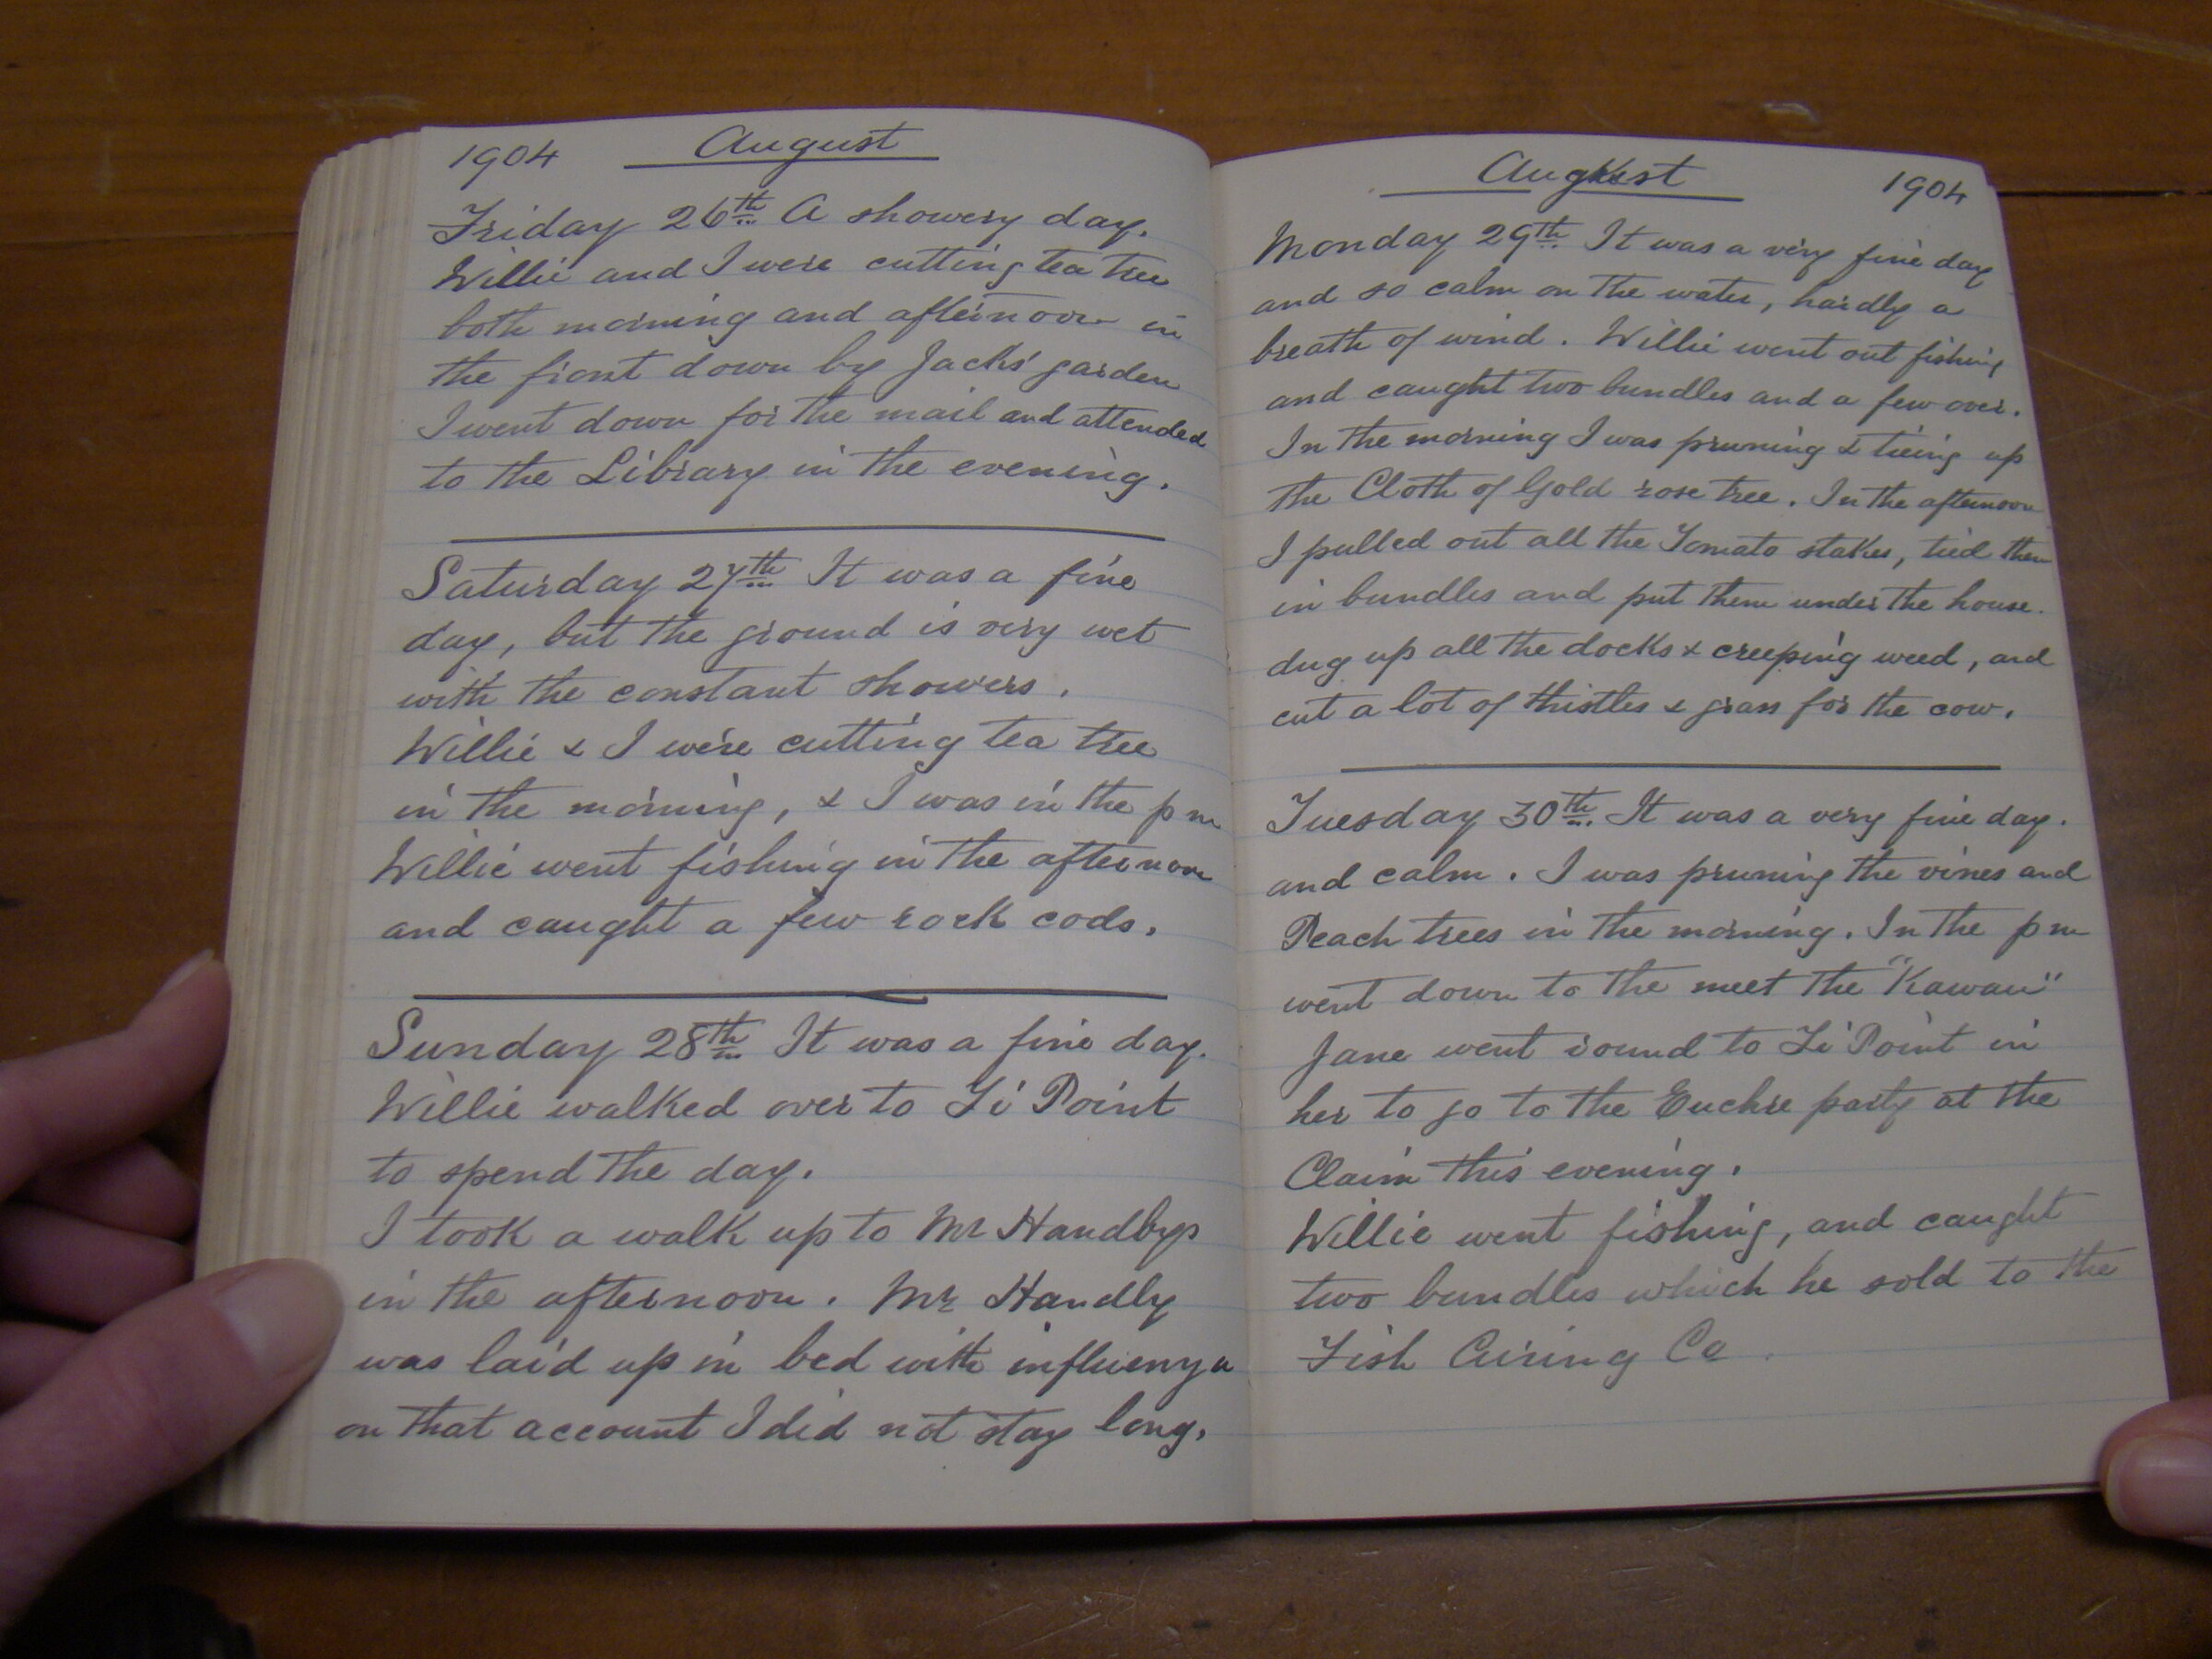 1904 August
Friday 26th A showery day.
Willie and I were cutting tea tree
both morning and afternoon in
the front down by Jacks' garden
I went down for the mail and attended
to the Library in the evening.
Saturday 27th It was a fine
day, but the ground is very wet
with the constant showers.
Willie & I were cutting tea tree
in the morning, & I was in the p m
Willie went fishing in the afternoon
and caught a few rock cods.
Sunday 28th It was a fine day.
Willie walked over to Ti Point
to spend the day.
I took a walk up to Mr Handbys
in the afternoon. Mr Handby
was laid up in bed with influenza
on that account I did not stay long.
August 1904
Monday 29th It was a very fine day
and so calm on the water, hardly a
breath of wind. Willie went out fishing
and caught two bundles and a few over.
In the morning I was pruning & tieing up
the Cloth of Gold rose tree. In the afternoon
I pulled out all the Tomato stakes, tied them
in bundles and put them under the house.
dug up all the docks & creeping weed, and
cut a lot of thistles & grass for the cow.
Tuesday 30th. It was a very fine day.
and calm. I was pruning the vines and
Peach trees in the morning. In the p m
went down to the meet the "Kawau"
Jane went round to Ti Point in
her to go to the Euchre party at the
Claim this evening.
Willie went fishing, and caught
two bundles which he sold to the
Fish Curing Co.